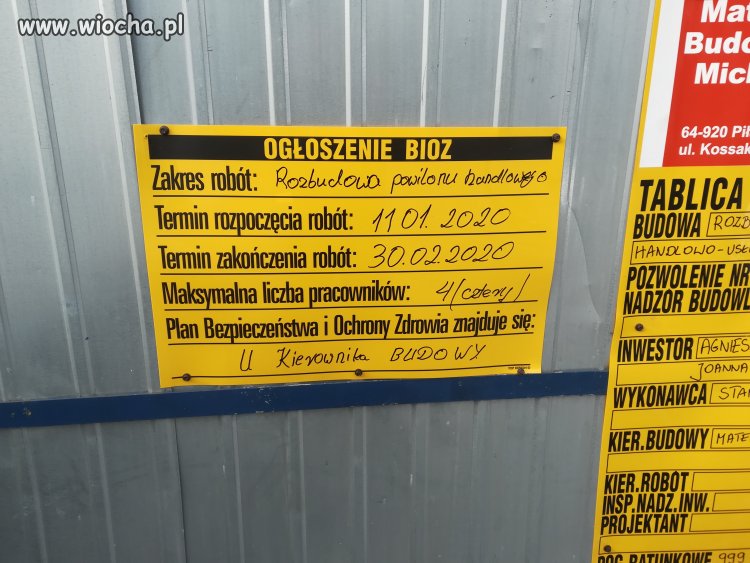 www.wiocha.pl
OGŁOSZENIE BIOZ
Zakres robót: Rozbudowa pawilonu handlowego
Termin rozpoczęcia robót: 11 01. 2020
Termin zakończenia robót: 30.02.2020
Maksymalna liczba pracowników: 4 (cztery)
Plan Bezpieczeństwa i Ochrony Zdrowia znajduje się:
U Kierownika BUDOWY
Mat
Budo
Mich
64-920 Pił
ul. Kossak
TABLICA
BUDOWA ROZB
HANDLOWO-USŁ
POZWOLENIE NR
NADZÓR BUDOWL
INWESTOR AGNIES
JOANNA
WYKONAWCA STA
KIER.BUDOWY MATE
KIER.ROBÓT
INSP.NADZ.INW.
PROJEKTANT
POG.RATUNKOWE 999